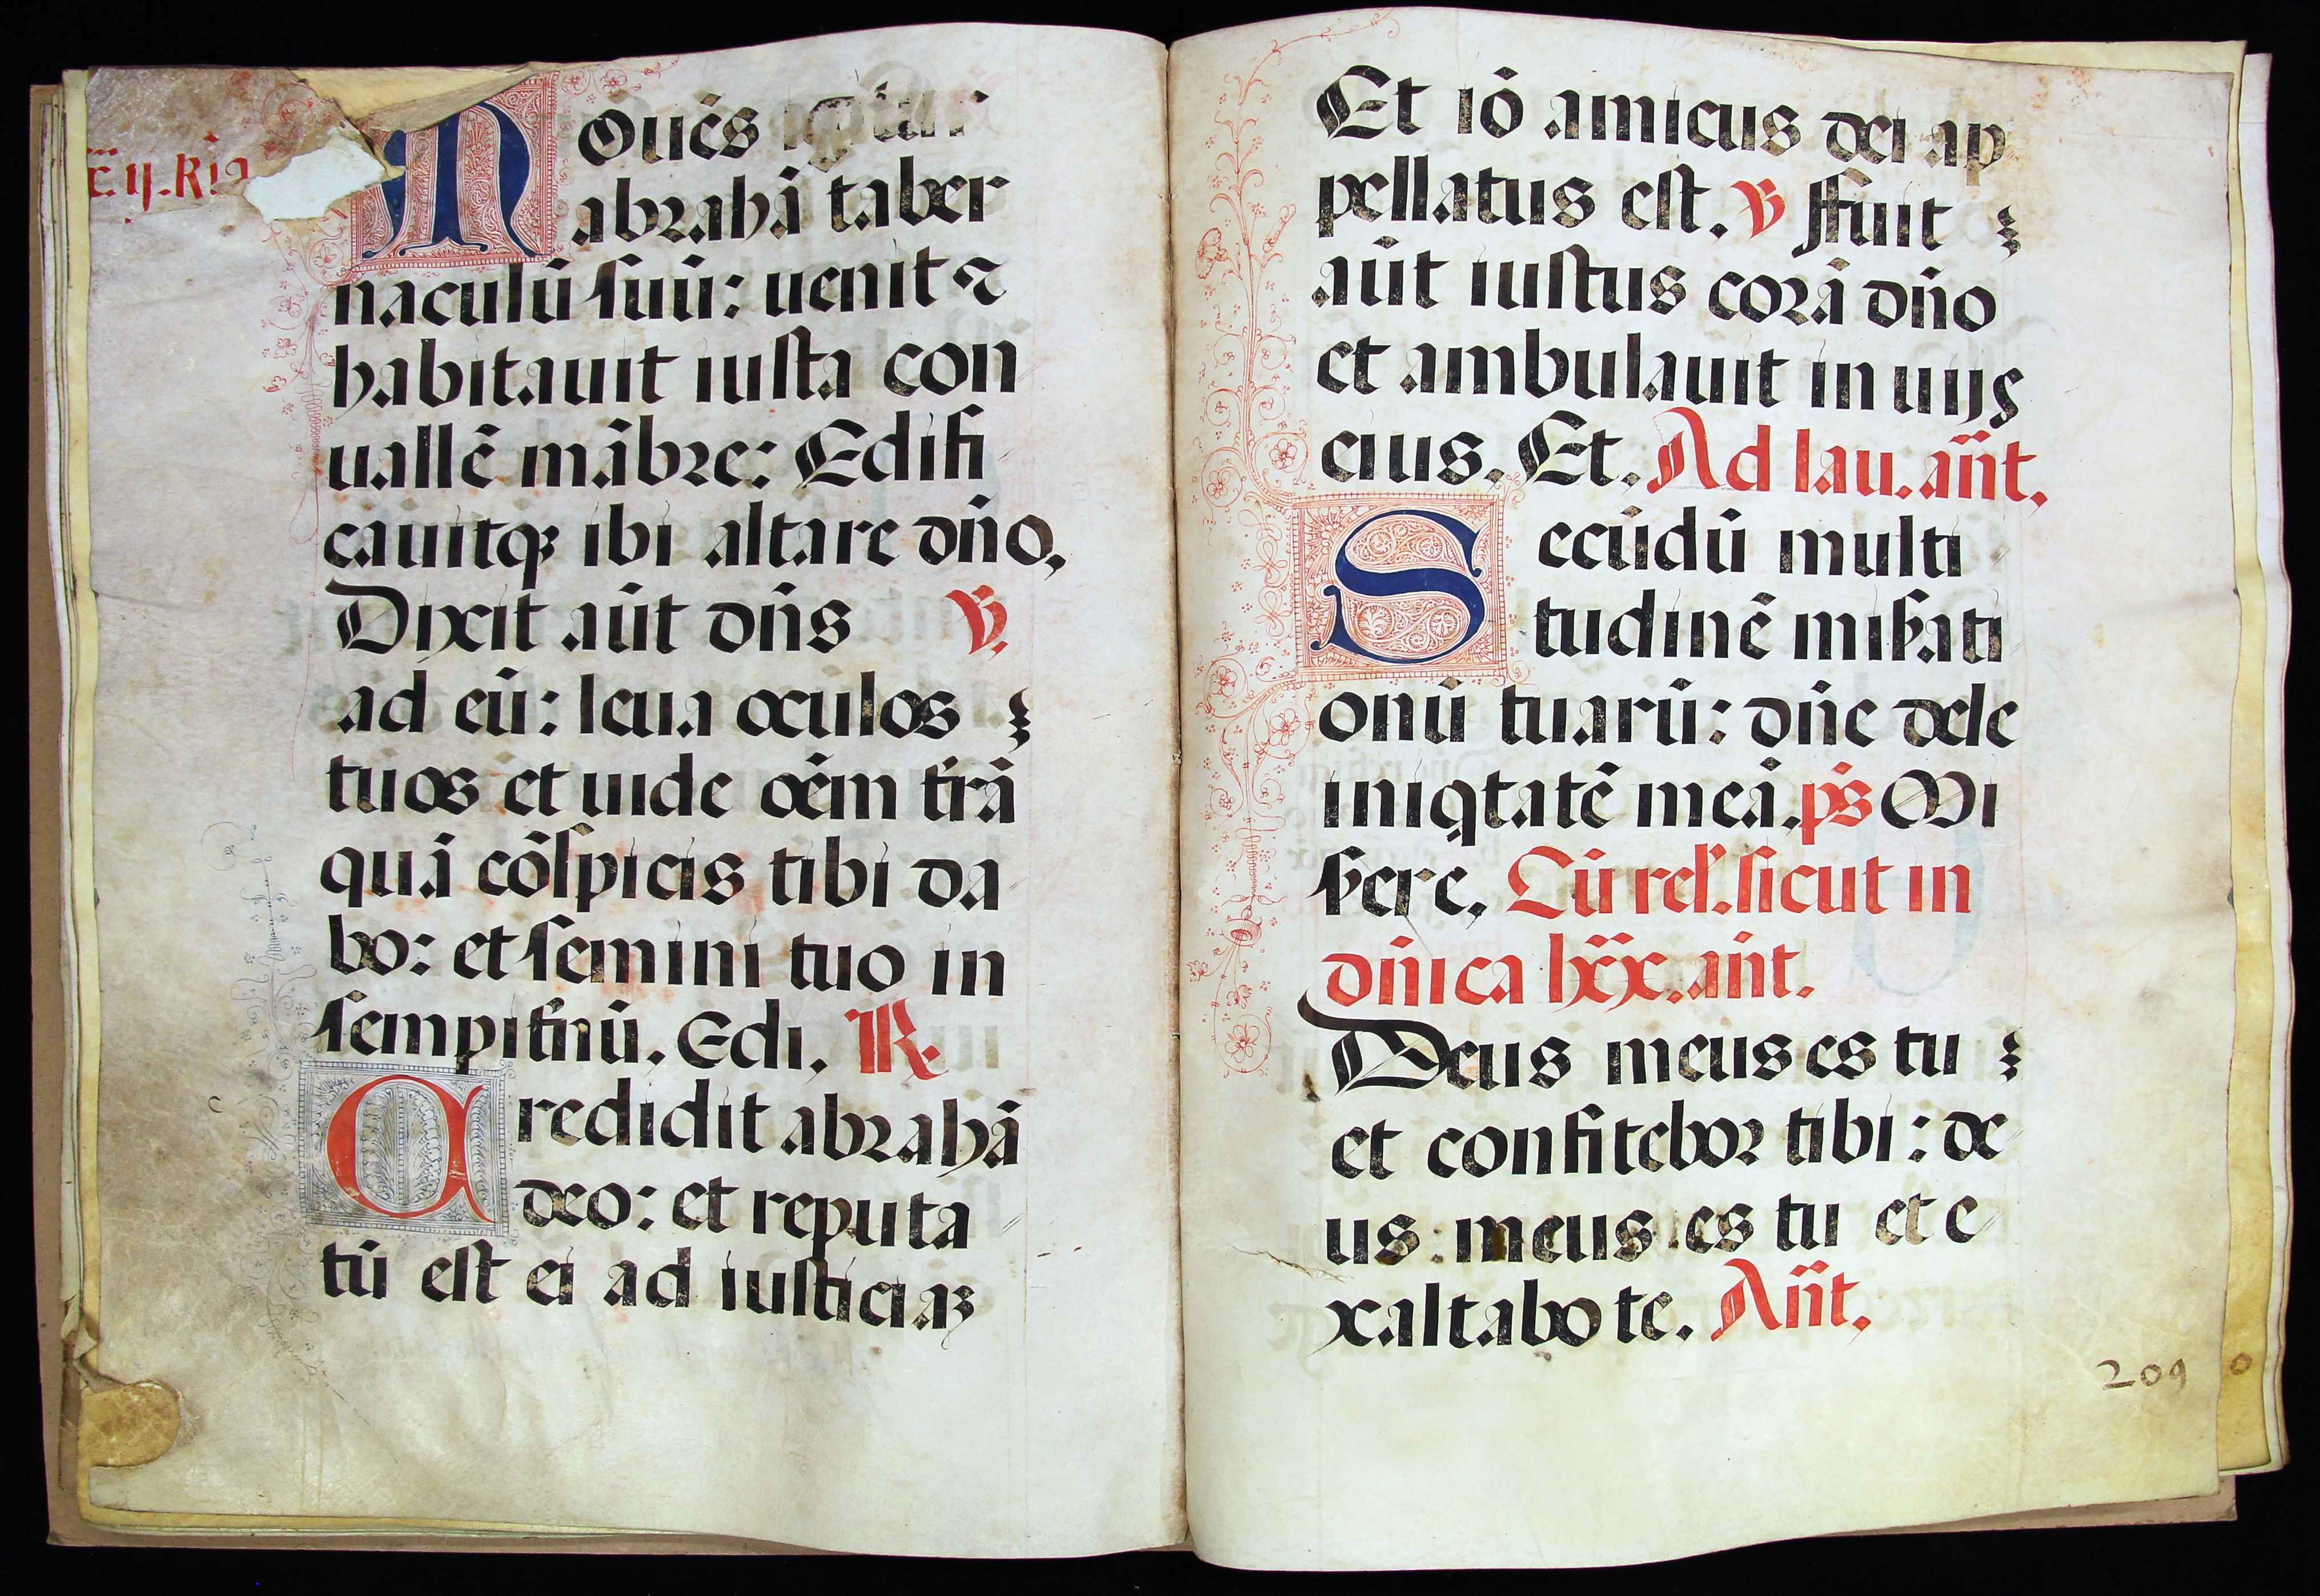 c̄ ij. Ria
Mouēs igitur
abrahā taber
naculū suū: uenit ⁊
habitauit iuxta con
uallē mābre: Edifi
cauitqꝫ ibi altare dn̄o.
Dixit aūt dn̄s ℣.
ad eū: leua oculos
tuos et uide oēm tr̄ā
quā cōspicis tibi da
bo: et semini tuo in
sempit̄nū. Edi. ℟.
Credidit abrahā
deo: et reputa
tū est ei ad iusticiaꝫ
Et iō amicus dei ap
pellatus est. ℣ ffuit
aūt iustus corā dn̄o
et ambulauit in uijs
eius. Et. Ad lau. an̄t.
Secūdū multi
tudinē miẜati
onū tuarū: dn̄e dele
iniqtatē meā. ps̄ Mi
ẜere. Cū rel̄. sicut in
dn̄ica lxx. an̄t.
Deus meus es tu
et confitebor tibi: de
us meus es tu et e
xaltabo te. An̄t.
209